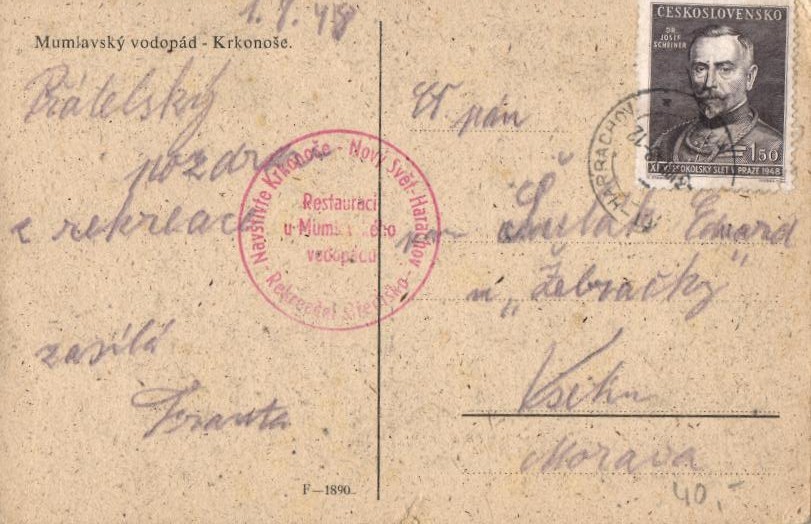 1.7.48
Mumlavský vodopád - Krkonoše.
Přátelský
pozdrav
z rekreace
zasílá
Franta
F—1890
Navštivte Krkonoše - Nový Svět-Harrachov
Rekreační středisko
Restaurací
u Muml
vodopádu
pán
Eduard
u „Žebračky"
Morava
40,-
ČESKOSLOVENSKO
DR.
JOSEF
SCHEINER
1·50
XI. VŠESOKOLSKÝ SLET V PRAZE 1948
HARRACHOV